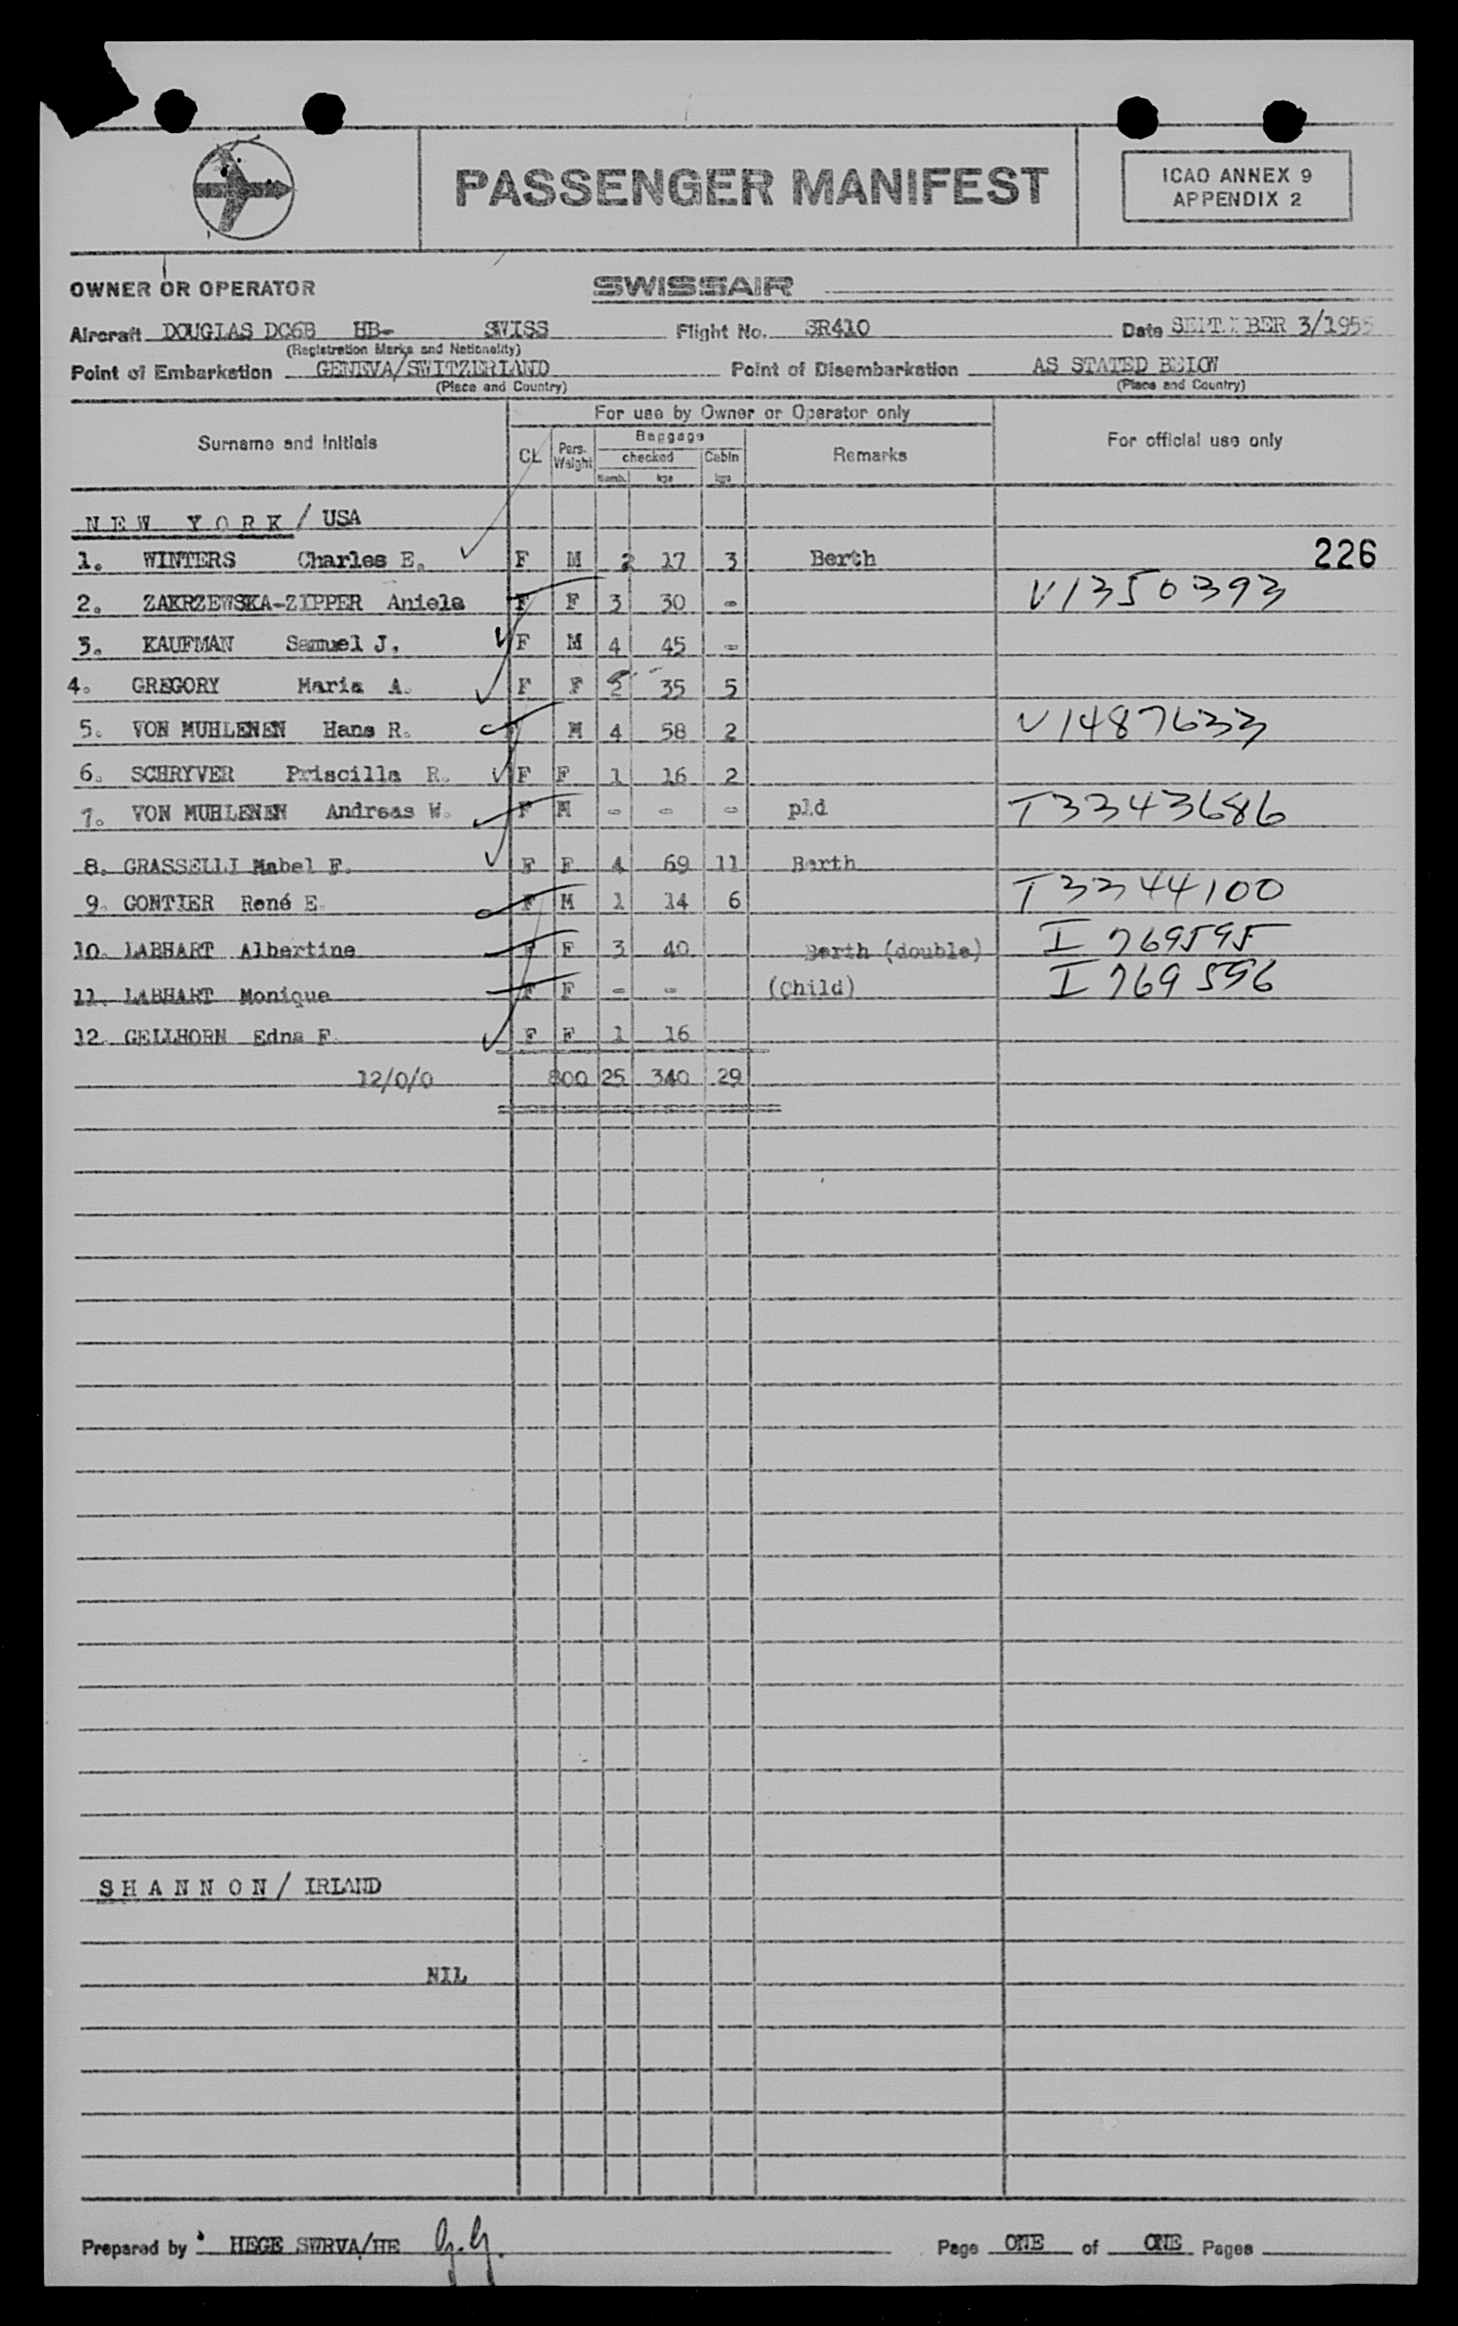 PASSENGER MANIFEST
ICAO ANNEX 9
APPENDIX 2
OWNER OR OPERATOR SWISSAIR
Aircraft DOUGLAS DC6B HB- SWISS Flight No. SR410 Date SEPTEMBER 3/1955
(Registration Marks and Nationality)
Point of Embarkation GENEVA/SWITZERLAND Point of Disembarkation AS STATED BELOW
(Place and Country) (Place and Country)
For use by Owner or Operator only
Surname and Initials CL Pers. Weight Baggage checked Numb. kgs Cabin kgs Remarks For official use only
NEW YORK/ USA
1. WINTERS Charles E. F M 2 17 3 Berth 226
2. ZAKRZEWSKA-ZIPPER Aniela F F 3 30 - V1350393
3. KAUFMAN Samuel J. F M 4 45 -
4. GREGORY Maria A. F F 2 35 5
5. VON MUHLENEN Hans R. M 4 58 2 V1487633
6. SCHRYVER Priscilla R. F F 1 16 2
7. VON MUHLENEN Andreas W. F M - - - pld T3343686
8. GRASSELLI Mabel F. F F 4 69 11 Berth
9. GONTIER René E. F M 1 14 6 T3344100
10. LABHART Albertine F F 3 40 Berth (double) I 769595
11. LABHART Monique F F - - (Child) I 769596
12. GELLHORN Edna F. F F 1 16
12/0/0 800 25 340 29
SHANNON/ IRLAND
NIL
Prepared by HEGE SWRVA/HE Page ONE of ONE Pages